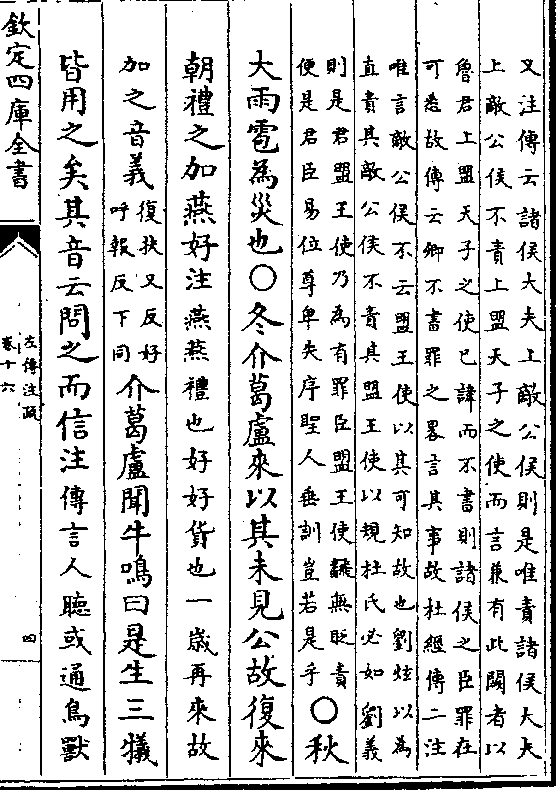 又注傳云諸侯大夫上敵公侯則是唯責諸侯大夫
上敵公侯不責上盟天子之使而言兼有此闕者以
魯君上盟天子之使已諱而不書則諸侯之臣罪在
可悉故傳云卿不書罪之畧言其事故杜經傳二注
唯言敵公侯不云盟王使以其可知故也劉炫以為
直責其敵公侯不責其盟王使以規杜氏必如劉義
則是君盟王使乃為有罪臣盟王使翻無貶責
便是君臣易位尊卑失序聖人垂訓豈若是乎○秋
大雨雹為災也○冬介葛盧來以其未見公故復來
朝禮之加燕好注燕燕禮也好好貨也一歲再來故
加之音義復扶又反好
呼報反下同介葛盧聞牛鳴曰是生三犧
皆用之矣其音云問之而信注傳言人聽或通鳥獸
欽定四庫全書
左傳注疏
卷十六
四